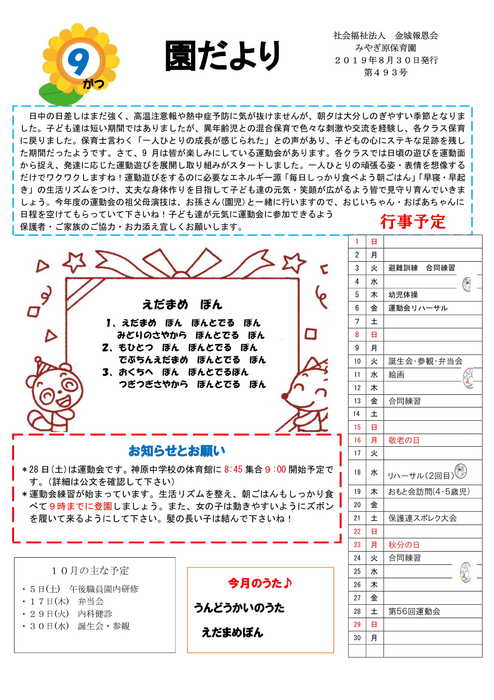 9
がつ
園だより
社会福祉法人　金城報恩会
みやぎ原保育園
２０１９年８月３０日発行
第４９３号
日中の日差しはまだ強く、高温注意報や熱中症予防に気が抜けませんが、朝夕は大分しのぎやすい季節となりま
した。子ども達は短い期間ではありましたが、異年齢児との混合保育で色々な刺激や交流を経験し、各クラス保育
に戻りました。保育士言わく「一人ひとりの成長が感じられた」との声があり、子どもの心にステキな足跡を残し
た期間だったようです。さて、９月は皆が楽しみにしている運動会があります。各クラスでは日頃の遊びを運動面
から捉え、発達に応じた運動遊びを展開し取り組みがスタートしました。一人ひとりの頑張る姿・表情を想像する
だけでワクワクしますね！運動遊びをするのに必要なエネルギー源「毎日しっかり食べよう朝ごはん」「早寝・早起
き」の生活リズムをつけ、丈夫な身体作りを目指して子ども達の元気・笑顔が広がるよう皆で見守り育んでいきま
しょう。今年度の運動会の祖父母演技は、お孫さん(園児)と一緒に行いますので、おじいちゃん・おばあちゃんに
日程を空けてもらっていて下さいね！子ども達が元気に運動会に参加できるよう
保護者・ご家族のご協力・お力添え宜しくお願いします。
行事予定
1 日
2 月
3 火 避難訓練　合同練習
4 水
5 木 幼児体操
6 金 運動会リハーサル
7 土
8 日
9 月
10 火 誕生会・参観・弁当会
11 水 絵画
12 木
13 金 合同練習
14 土
15 日
16 月 敬老の日
17 火
18 水 リハーサル(2回目)
19 木 おもと会訪問(4・5歳児)
20 金
21 土 保護連スポレク大会
22 日
23 月 秋分の日
24 火 合同練習
25 水
26 木
27 金
28 土 第56回運動会
29 日
30 月
えだまめ　ぽん
１、えだまめ　ぽん　ぽんとでる　ぽん
みどりのさやから　ぽんとでる　ぽん
２、もひとつ　ぽん　ぽんとでる　ぽん
でぶちんえだまめ　ぽんとでる　ぽん
３、おくちへ　ぽん　ぽんとでるぽん
つぎつぎさやから　ぽんとでる　ぽん
お知らせとお願い
＊28日(土)は運動会です。神原中学校の体育館に 8:45 集合９:00 開始予定で
す。（詳細は公文を確認して下さい）
＊運動会練習が始まっています。生活リズムを整え、朝ごはんもしっかり食
べて９時までに登園しましょう。また、女の子は動きやすいようにズボン
を履いて来るようにして下さい。髪の長い子は結んで下さいね！
１０月の主な予定
・５日(土)　午後職員園内研修
・１７日(木)　弁当会
・２９日(火)　内科健診
・３０日(水)　誕生会・参観
今月のうた♪
うんどうかいのうた
えだまめぽん